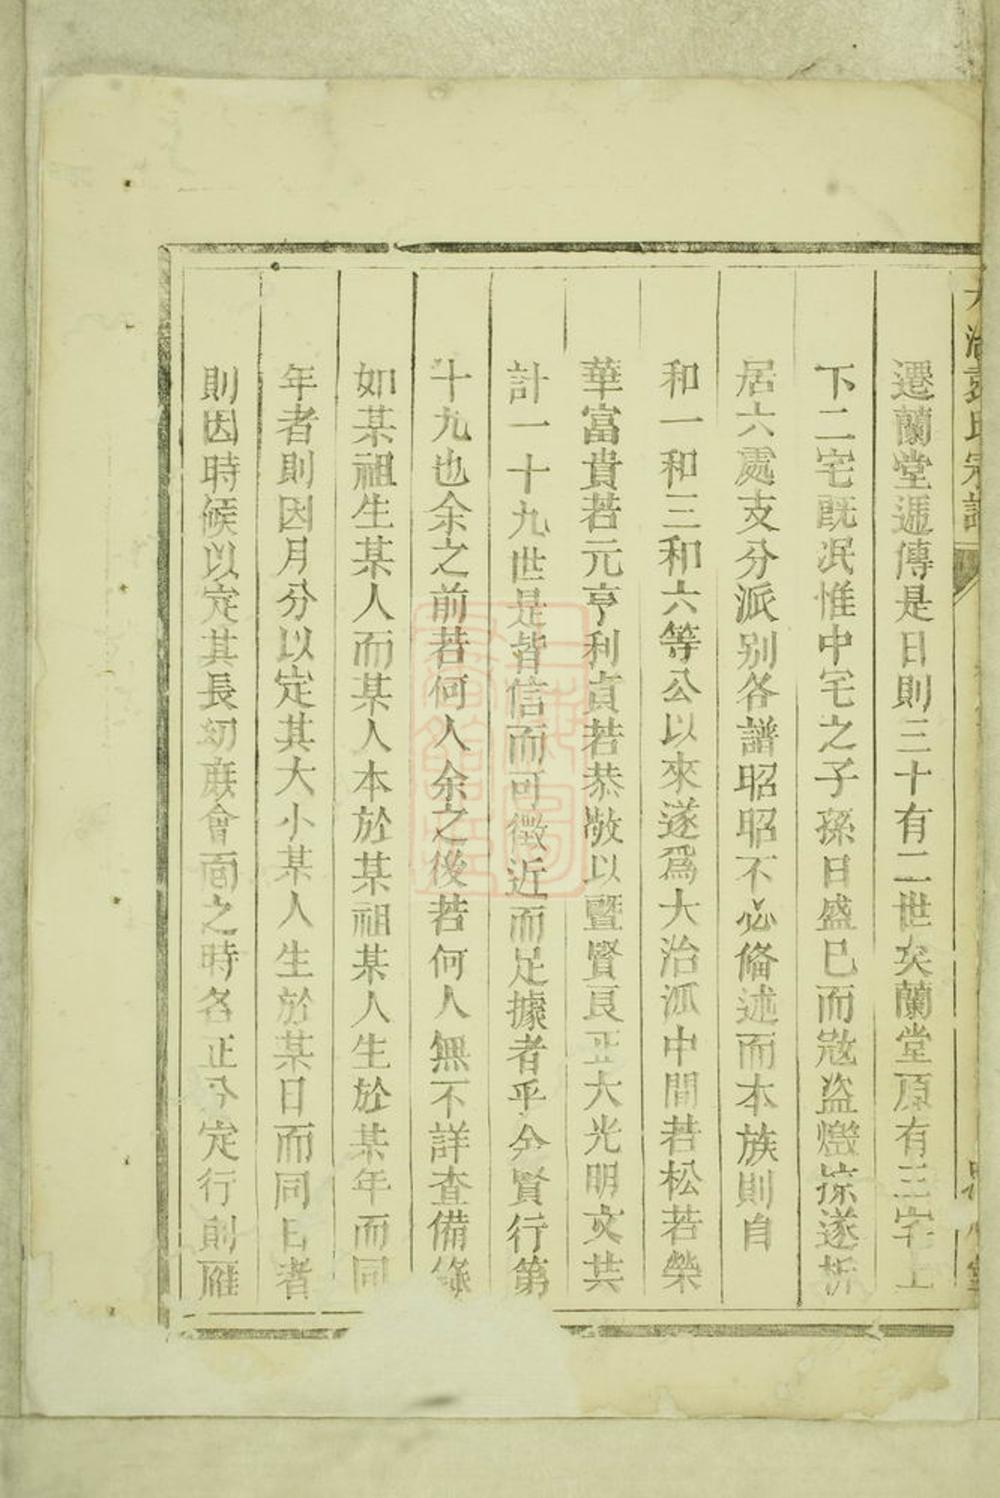 遷蘭堂遞傳是日則三十有二世矣蘭堂原有三宅上
下二宅既泯惟中宅之子孫日盛已而寇盜燬掠遂析
居六處支分派别各譜昭昭不必備述而本族則自
和一和三和六等公以來遂爲大冶派中間若松若榮
華富貴若元亨利貞若恭敬以暨賢良正大光明文共
計一十九世是皆信而可徵近而足據者乎今賢行第
十九也余之前若何人余之後若何人無不詳查備錄
如某祖生某人而某人本於某祖某人生於某年而同
年者則因月分以定其大小某人生於某日而同日者
則因時候以定其長幼族會面之時各正分定行則雁